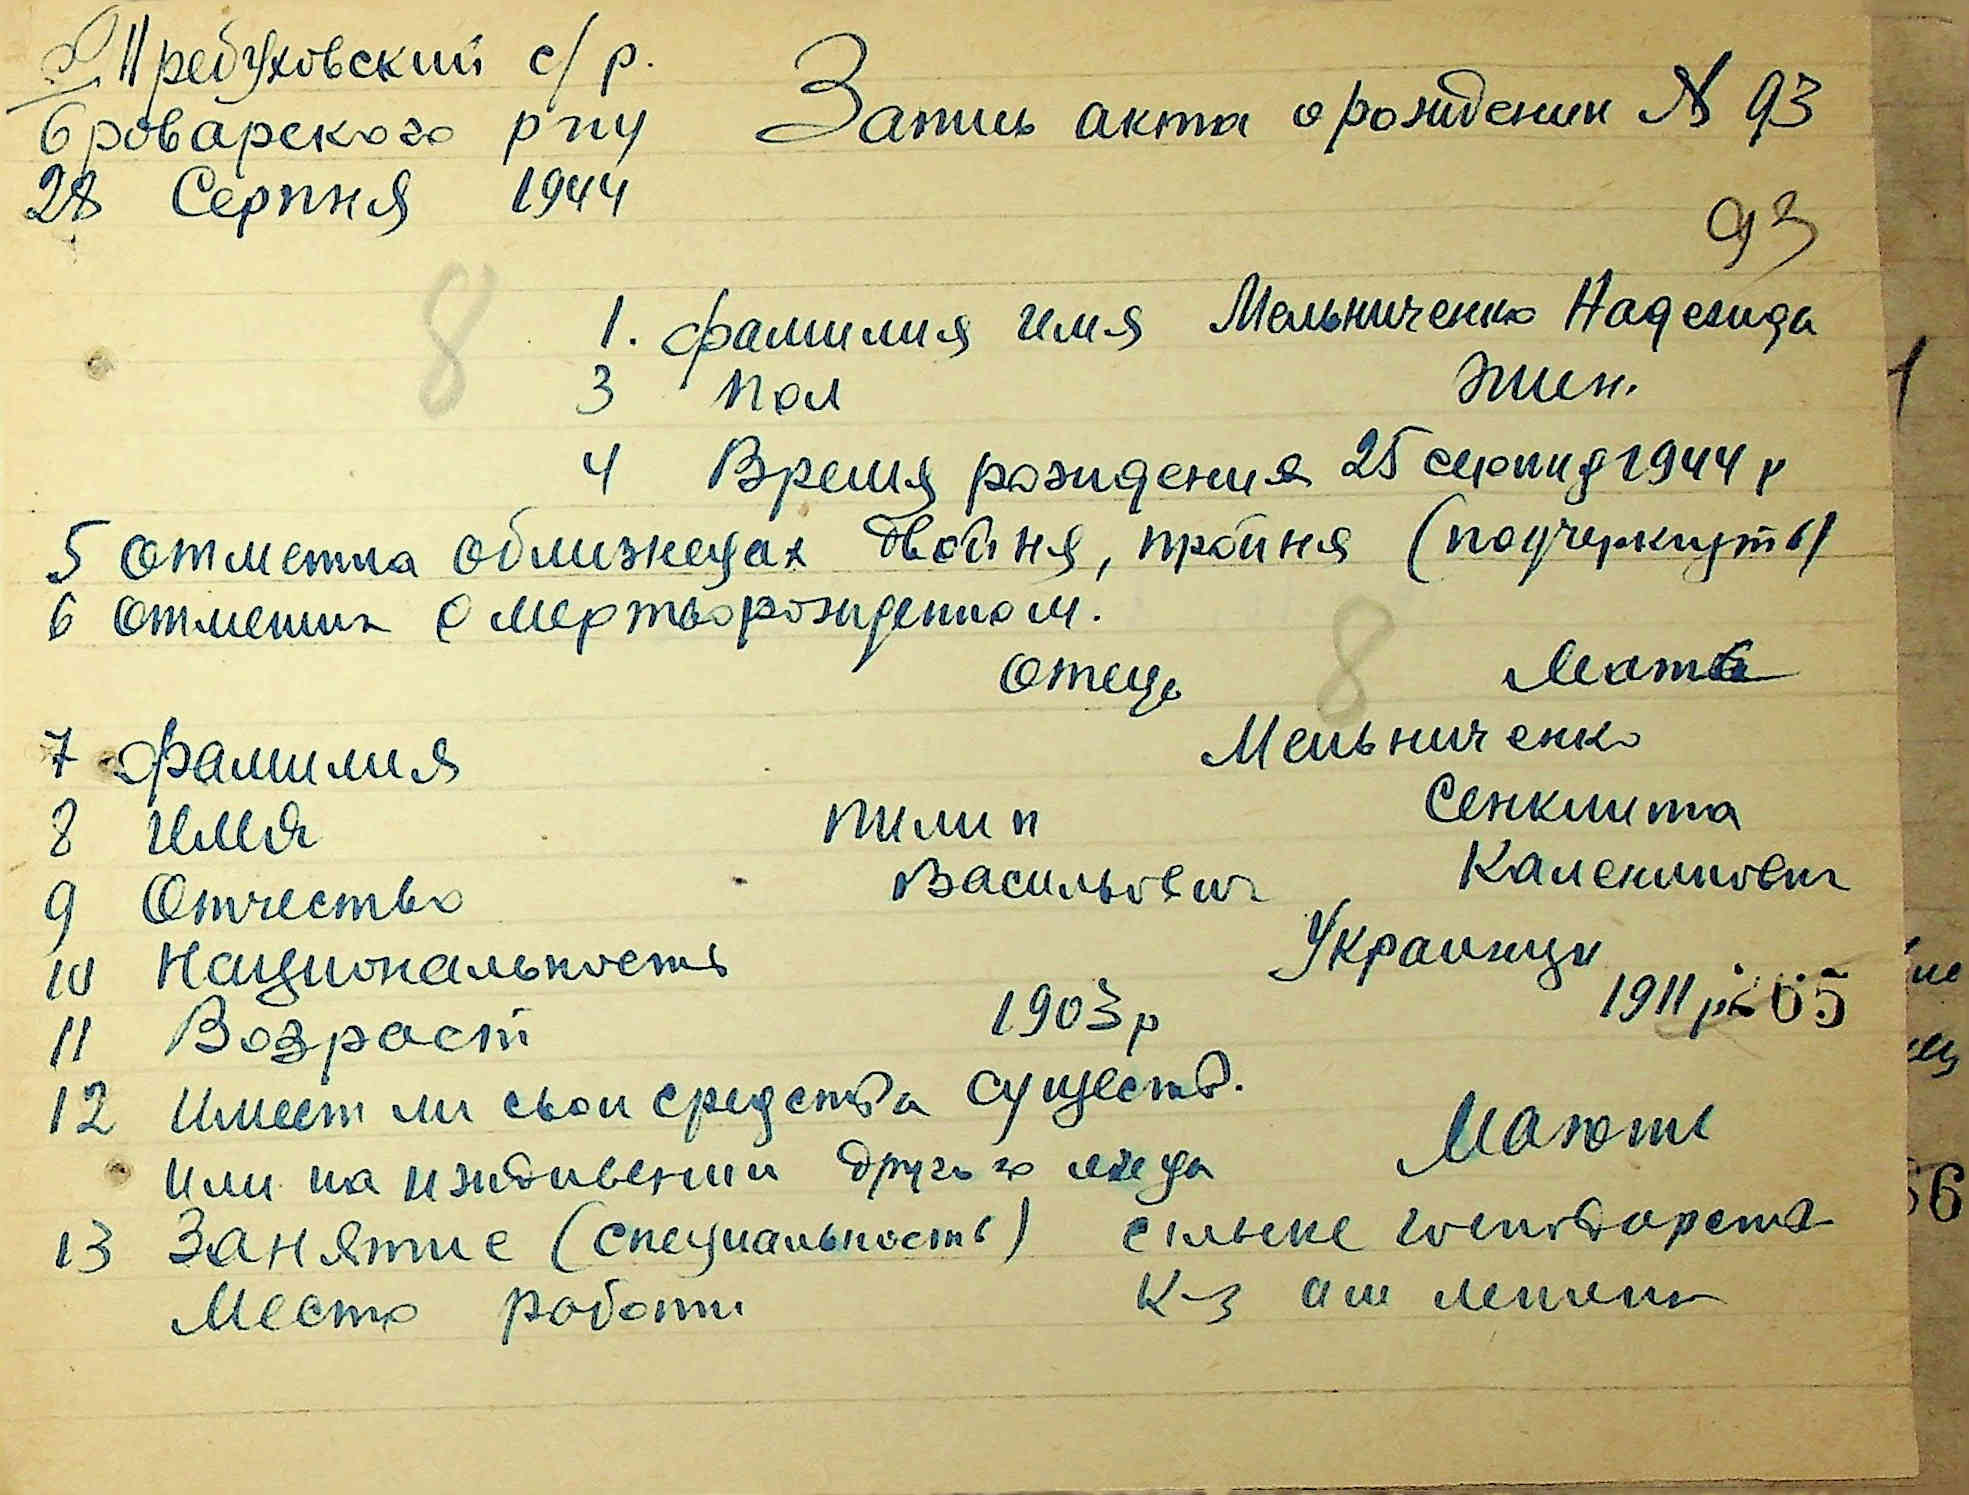 Требуховский с/р.
Броварского рпу Запись акта о рождении № 93
28 Серпня 1944
93
8
1. фамилия имя Мельниченко Надежида
3 пол жин.
4 Время рождения 25 серпня 1944 р
5 отметка о близнецах двойня, тройня (подчеркнуть)
6 отметка о мертворожденном.
8
отець Мать
7 фамилия Мельниченко
8 имя пилип Сенклита
9 Отчество Васильович Калениковн
10 Национальность Украинци
11 Возраст 1903р 1911р 205
12 имеет ли свои средства существ.
или на иждивении другого лица Мають
13 Занятие (специальность) сільске господарств
Место работи к-з им ленина